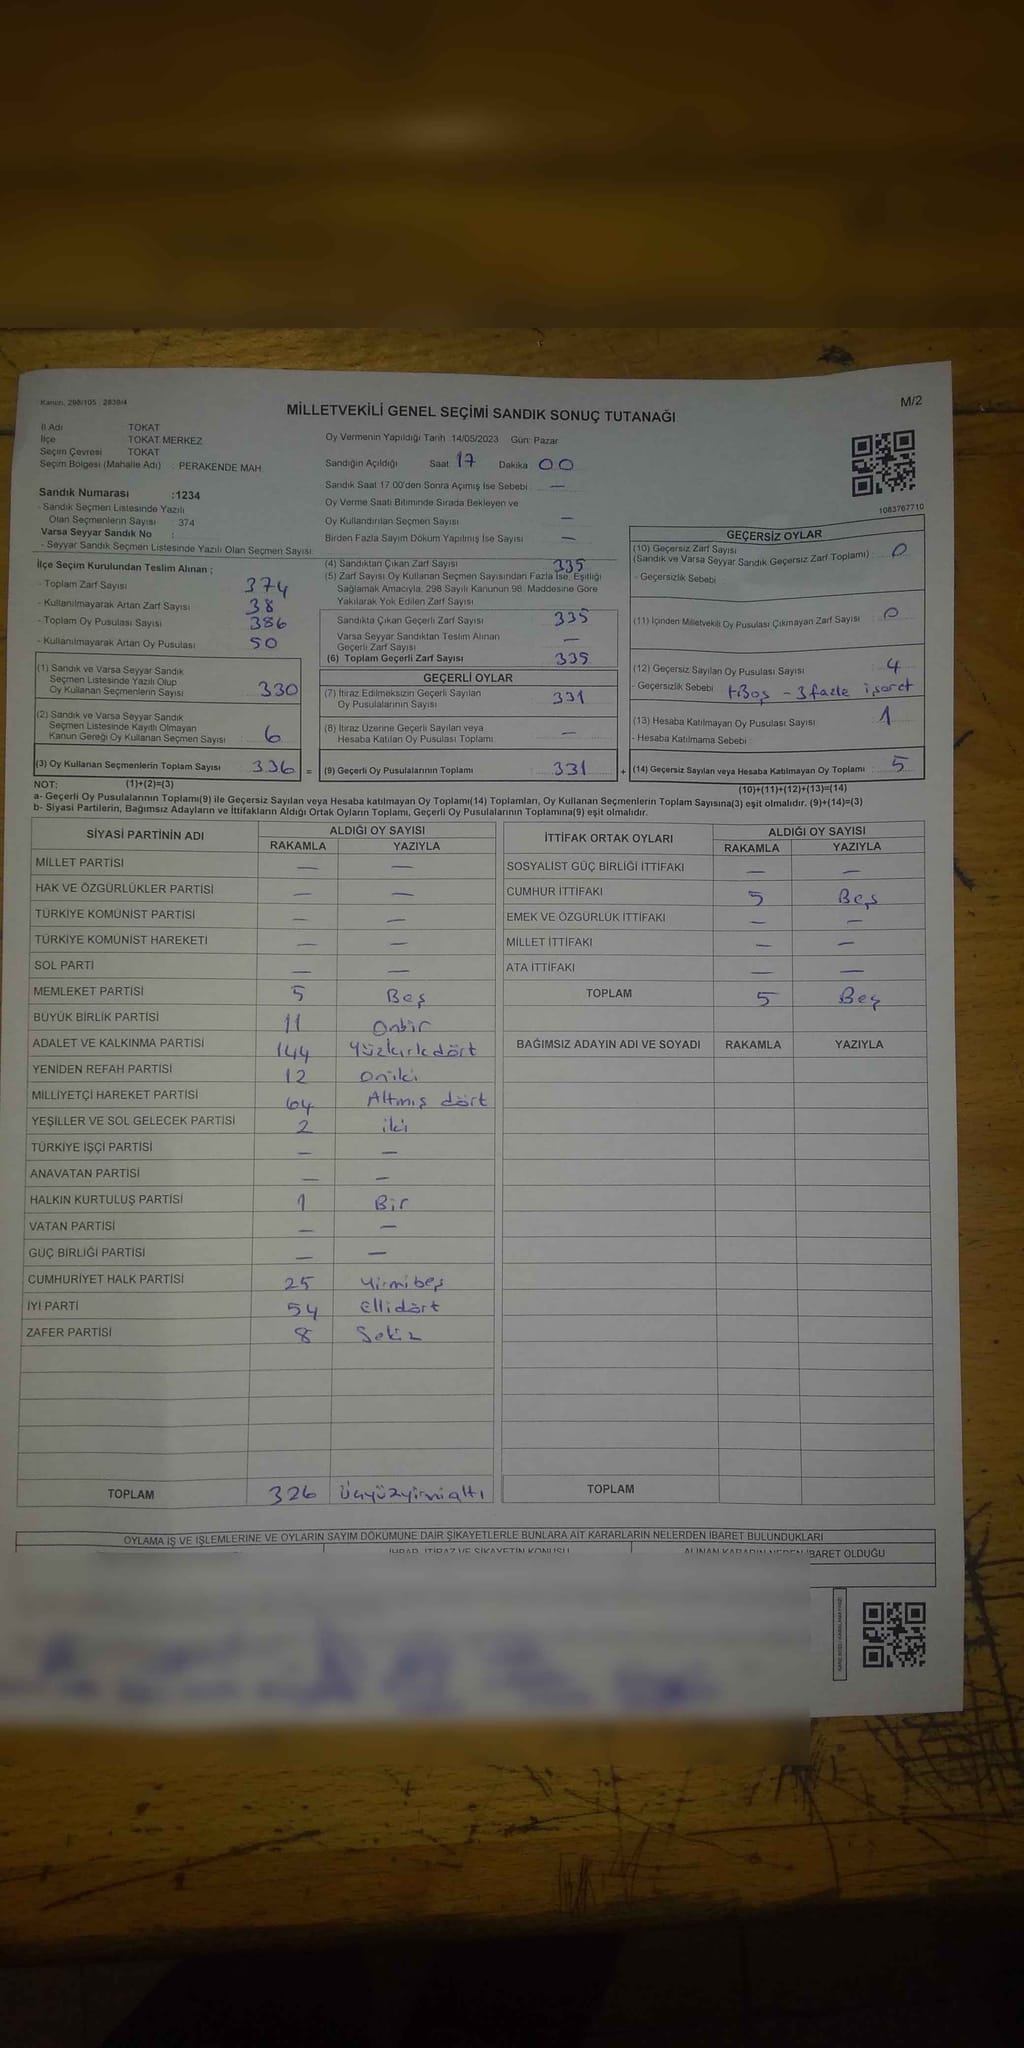 Kanun, 298/105 , 2839/4
MİLLETVEKİLİ GENEL SEÇİMİ SANDIK SONUÇ TUTANAĞI
M/2
İl Adı TOKAT
İlçe TOKAT MERKEZ
Seçim Çevresi TOKAT
Seçim Bölgesi (Mahalle Adı) : PERAKENDE MAH.
Oy Vermenin Yapıldığı Tarih 14/05/2023 Gün: Pazar
Sandığın Açıldığı Saat 17 Dakika 00
Sandık Saat 17.00'den Sonra Açımış İse Sebebi : —
Oy Verme Saati Bitiminde Sırada Bekleyen ve
Oy Kullandırılan Seçmen Sayısı —
Birden Fazla Sayım Döküm Yapılmış İse Sayısı —
1083767710
Sandık Numarası :1234
- Sandık Seçmen Listesinde Yazılı
Olan Seçmenlerin Sayısı : 374
Varsa Seyyar Sandık No :
- Seyyar Sandık Seçmen Listesinde Yazılı Olan Seçmen Sayısı:
İlçe Seçim Kurulundan Teslim Alınan ;
- Toplam Zarf Sayısı 374
- Kullanılmayarak Artan Zarf Sayısı 38
- Toplam Oy Pusulası Sayısı 386
- Kullanılmayarak Artan Oy Pusulası 50
(1) Sandık ve Varsa Seyyar Sandık
Seçmen Listesinde Yazılı Olup
Oy Kullanan Seçmenlerin Sayısı 330
(2) Sandık ve Varsa Seyyar Sandık
Seçmen Listesinde Kayıtlı Olmayan
Kanun Gereği Oy Kullanan Seçmen Sayısı 6
(3) Oy Kullanan Seçmenlerin Toplam Sayısı 336 =
(4) Sandıktan Çıkan Zarf Sayısı 335
(5) Zarf Sayısı Oy Kullanan Seçmen Sayısından Fazla İse, Eşitliği
Sağlamak Amacıyla, 298 Sayılı Kanunun 98. Maddesine Göre
Yakılarak Yok Edilen Zarf Sayısı
Sandıkta Çıkan Geçerli Zarf Sayısı 335
Varsa Seyyar Sandıktan Teslim Alınan
Geçerli Zarf Sayısı —
(6) Toplam Geçerli Zarf Sayısı 335
GEÇERLİ OYLAR
(7) İtiraz Edilmeksizin Geçerli Sayılan
Oy Pusulalarının Sayısı 331
(8) İtiraz Üzerine Geçerli Sayılan veya
Hesaba Katılan Oy Pusulası Toplamı —
(9) Geçerli Oy Pusulalarının Toplamı 331 +
GEÇERSİZ OYLAR
(10) Geçersiz Zarf Sayısı
(Sandık ve Varsa Seyyar Sandık Geçersiz Zarf Toplamı) : 0
- Geçersizlik Sebebi
(11) İçinden Milletvekili Oy Pusulası Çıkmayan Zarf Sayısı : 0
(12) Geçersiz Sayılan Oy Pusulası Sayısı : 4
- Geçersizlik Sebebi : 1 Boş - 3 fazla işaret
(13) Hesaba Katılmayan Oy Pusulası Sayısı : 1
- Hesaba Katılmama Sebebi :
(14) Geçersiz Sayılan veya Hesaba Katılmayan Oy Toplamı : 5
NOT: (1)+(2)=(3)
(10)+(11)+(12)+(13)=(14)
a- Geçerli Oy Pusulalarının Toplamı(9) ile Geçersiz Sayılan veya Hesaba katılmayan Oy Toplamı(14) Toplamları, Oy Kullanan Seçmenlerin Toplam Sayısına(3) eşit olmalıdır. (9)+(14)=(3)
b- Siyasi Partilerin, Bağımsız Adayların ve İttifakların Aldığı Ortak Oyların Toplamı, Geçerli Oy Pusulalarının Toplamına(9) eşit olmalıdır.
SİYASİ PARTİNİN ADI ALDIĞI OY SAYISI
RAKAMLA YAZIYLA
MİLLET PARTİSİ — —
HAK VE ÖZGÜRLÜKLER PARTİSİ — —
TÜRKİYE KOMÜNİST PARTİSİ — —
TÜRKİYE KOMÜNİST HAREKETİ — —
SOL PARTİ — —
MEMLEKET PARTİSİ 5 Beş
BÜYÜK BİRLİK PARTİSİ 11 Onbir
ADALET VE KALKINMA PARTİSİ 144 Yüzkırkdört
YENİDEN REFAH PARTİSİ 12 Oniki
MİLLİYETÇİ HAREKET PARTİSİ 64 Altmış dört
YEŞİLLER VE SOL GELECEK PARTİSİ 2 iki
TÜRKİYE İŞÇİ PARTİSİ — —
ANAVATAN PARTİSİ — —
HALKIN KURTULUŞ PARTİSİ 1 Bir
VATAN PARTİSİ — —
GÜÇ BİRLİĞİ PARTİSİ — —
CUMHURİYET HALK PARTİSİ 25 Yirmibeş
İYİ PARTİ 54 Ellidört
ZAFER PARTİSİ 8 Sekiz
TOPLAM 326 Üçyüzyirmialtı
İTTİFAK ORTAK OYLARI ALDIĞI OY SAYISI
RAKAMLA YAZIYLA
SOSYALİST GÜÇ BİRLİĞİ İTTİFAKI — —
CUMHUR İTTİFAKI 5 Beş
EMEK VE ÖZGÜRLÜK İTTİFAKI — —
MİLLET İTTİFAKI — —
ATA İTTİFAKI — —
TOPLAM 5 Beş
BAĞIMSIZ ADAYIN ADI VE SOYADI RAKAMLA YAZIYLA
TOPLAM
OYLAMA İŞ VE İŞLEMLERİNE VE OYLARIN SAYIM DÖKÜMÜNE DAİR ŞİKAYETLERLE BUNLARA AİT KARARLARIN NELERDEN İBARET BULUNDUKLARI
İHBAR, İTİRAZ VE ŞİKAYETİN KONUSU ALINAN KARARIN NEDEN İBARET OLDUĞU